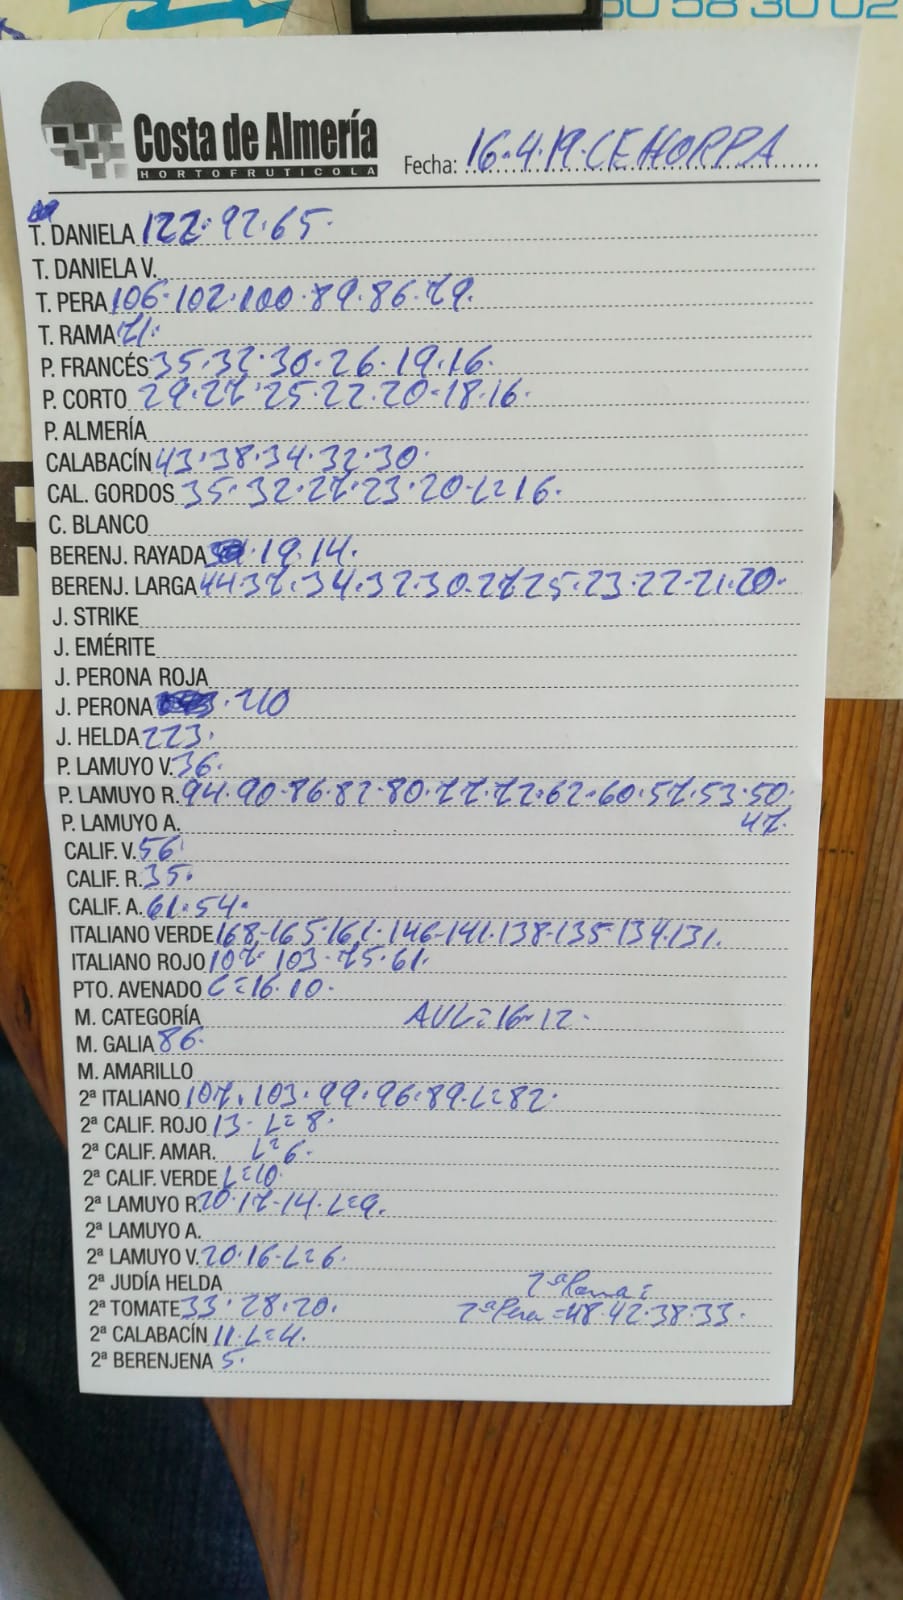 50 58 30 02
Costa de Almería
HORTOFRUTICOLA
Fecha: 16.4.19.CEHORPA
T. DANIELA 122.92.65.
T. DANIELA V.
T. PERA 106.102.100.89.86.79.
T. RAMA 71.
P. FRANCÉS 35.32.30.26.19.16.
P. CORTO 29.27.25.22.20.18.16.
P. ALMERÍA
CALABACÍN 43.38.34.32.30.
CAL. GORDOS 35.32.27.23.20-L=16.
C. BLANCO
BERENJ. RAYADA .19.14.
BERENJ. LARGA 44.37.34.32.30.27.25.23.22.21.20.
J. STRIKE
J. EMÉRITE
J. PERONA ROJA
J. PERONA .210
J. HELDA 223.
P. LAMUYO V. 36.
P. LAMUYO R. 94.90.86.82.80.77.72.62.60.57.53.50.
P. LAMUYO A. 47.
CALIF. V. 56
CALIF. R. 35.
CALIF. A. 61.54.
ITALIANO VERDE 168-165.161.146-141.138-135-134.131.
ITALIANO ROJO 107.103.75.61.
PTO. AVENADO C=16.10.
M. CATEGORÍA AVL=16-12.
M. GALIA 86.
M. AMARILLO
2ª ITALIANO 107.103.99.96.89.L=82.
2ª CALIF. ROJO 13-L=8.
2ª CALIF. AMAR. L=6.
2ª CALIF. VERDE L=10.
2ª LAMUYO R. 20.17-14.L=9.
2ª LAMUYO A.
2ª LAMUYO V. 20.16-L=6.
2ª JUDÍA HELDA 2ª Rama=
2ª TOMATE 33.28.20. 2ª Pera=48.42.38.33.
2ª CALABACÍN 11.L=4.
2ª BERENJENA 5.